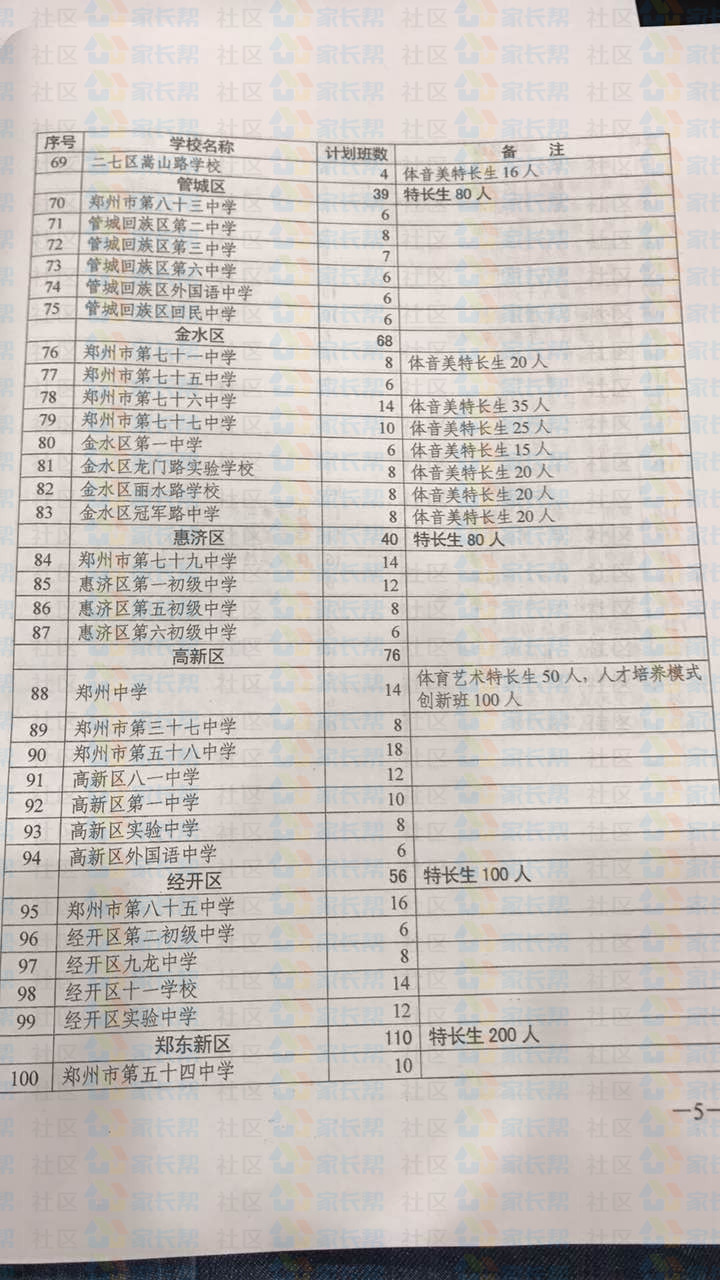 序号 学校名称 计划班数 备 注
69 二七区嵩山路学校 4 体音美特长生16人
管城区 39 特长生80人
70 郑州市第八十三中学 6
71 管城回族区第二中学 8
72 管城回族区第三中学 7
73 管城回族区第六中学 6
74 管城回族区外国语中学 6
75 管城回族区回民中学 6
金水区 68
76 郑州市第七十一中学 8 体音美特长生20人
77 郑州市第七十五中学 6
78 郑州市第七十六中学 14 体音美特长生35人
79 郑州市第七十七中学 10 体音美特长生25人
80 金水区第一中学 6 体音美特长生15人
81 金水区龙门路实验学校 8 体音美特长生20人
82 金水区丽水路学校 8 体音美特长生20人
83 金水区冠军路中学 8 体音美特长生20人
惠济区 40 特长生80人
84 郑州市第七十九中学 14
85 惠济区第一初级中学 12
86 惠济区第五初级中学 8
87 惠济区第六初级中学 6
高新区 76
88 郑州中学 14 体育艺术特长生50人，人才培养模式
创新班100人
89 郑州市第三十七中学 8
90 郑州市第五十八中学 18
91 高新区八一中学 12
92 高新区第一中学 10
93 高新区实验中学 8
94 高新区外国语中学 6
经开区 56 特长生100人
95 郑州市第八十五中学 16
96 经开区第二初级中学 6
97 经开区九龙中学 8
98 经开区十一学校 14
99 经开区实验中学 12
郑东新区 110 特长生200人
100 郑州市第五十四中学 10
—5—
家长帮 社区